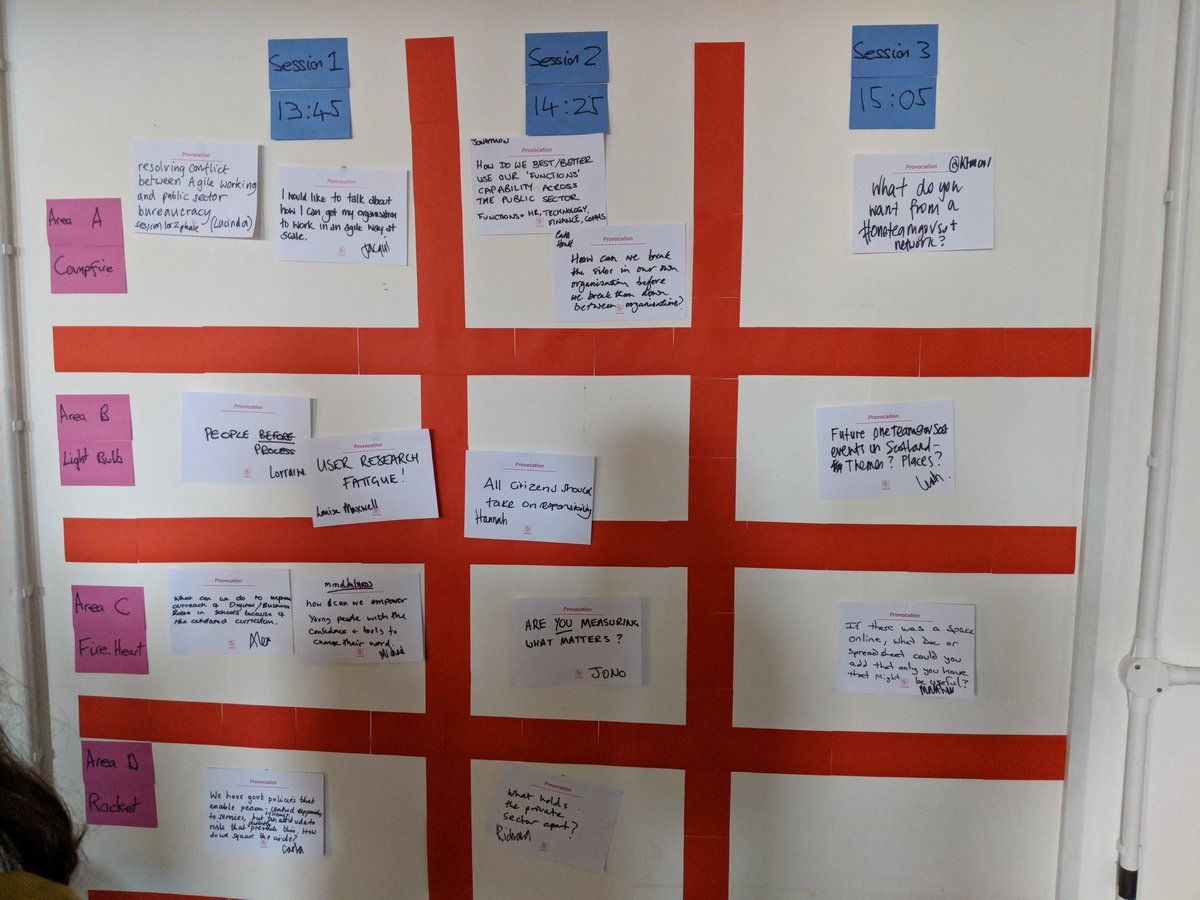 Session 1
13:45
Session 2
14:25
Session 3
15:05
Area A
Campfire
Provocation
resolving conflict
between Agile working
and public sector
bureaucracy
(Lucinda)
session 1 or 2 please
Provocation
I would like to talk about
how I can get my organisation
to work in an agile way at
scale.
Jacqui
JONATHON
Provocation
HOW DO WE BEST/BETTER
USE OUR 'FUNCTIONS'
CAPABILITY ACROSS
THE PUBLIC SECTOR
FUNCTIONS = HR, TECHNOLOGY,
FINANCE, COMMS
Provocation
How can we break
the silos in our own
organisation before
we break them down
between organisations?
Provocation
What do you
want from a
#oneteamgovscot
network?
Area B
Light Bulb
Provocation
PEOPLE BEFORE
PROCESS
Lorraine
Provocation
USER RESEARCH
FATIGUE!
Louise Maxwell
Provocation
All citizens should
take on responsibility
Hannah
Provocation
Future oneTeamGovScot
events in Scotland -
Themes? Places?
Leah.
Area C
Fire Heart
Provocation
What can we do to improve
outreach of Digital/Business
Roles in schools because of
the outdated curriculum.
Alex
mindfulness
how can we empower
young people with the
confidence + tools to
change their world.
Provocation
ARE YOU MEASURING
WHAT MATTERS?
JONO
Provocation
If there was a space
online, what Doc or
spreadsheet could you
add that only you have
that might be useful?
Area D
Rocket
Provocation
We have govt policies that
enable person-centred approaches
to services, but systems
attitude to
risk that prevents this. How
do we square the circle?
Carla
Provocation
What holds
the private
sector apart?